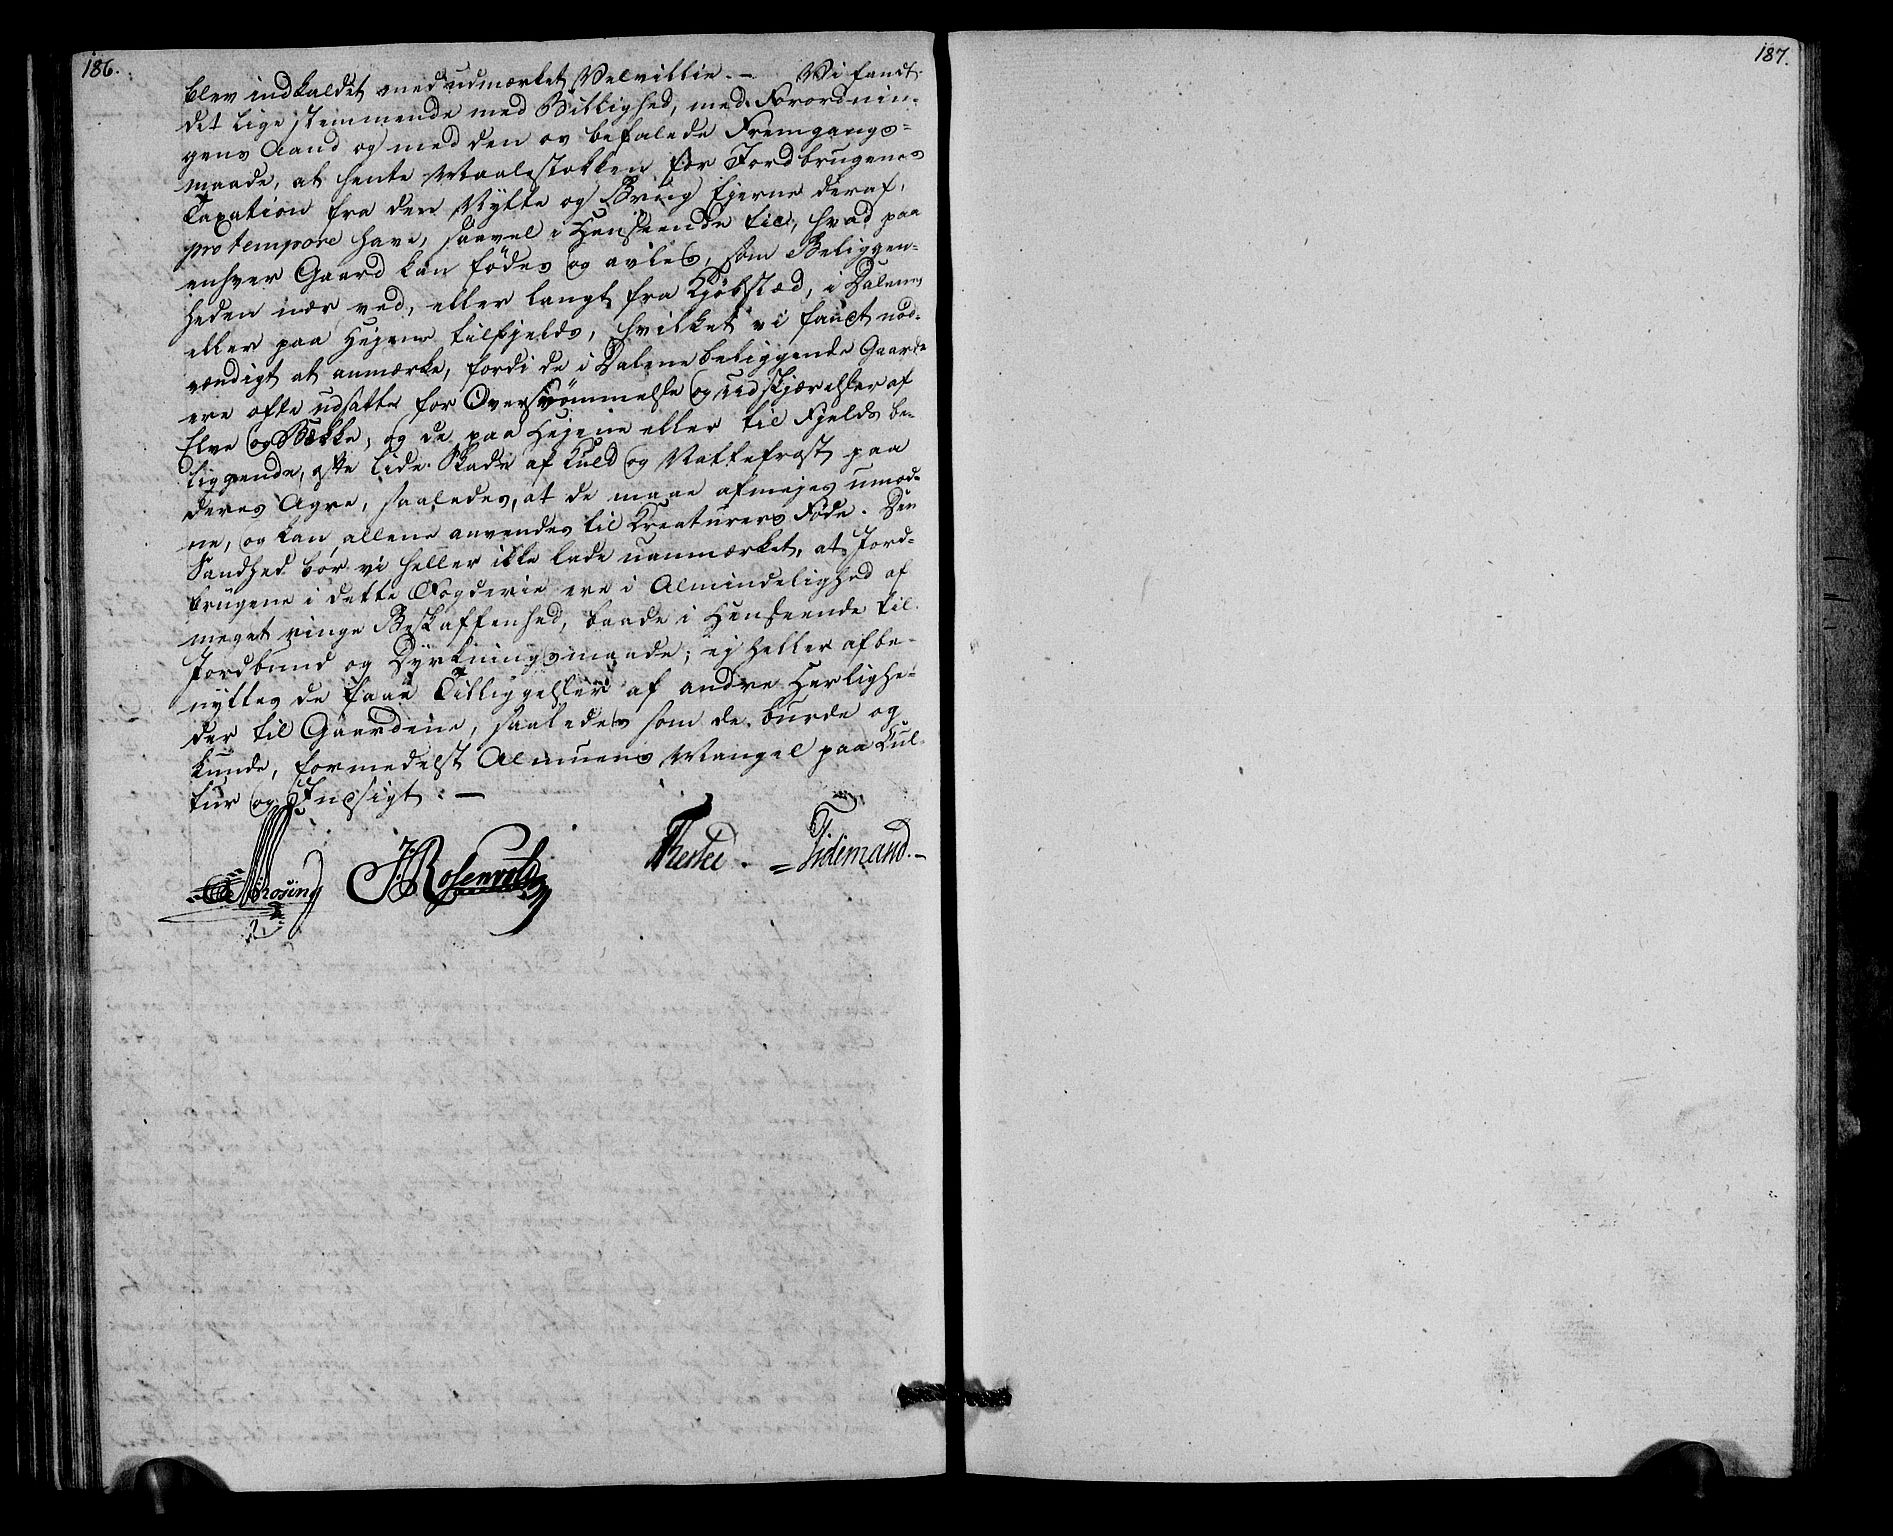 186.
blev indkaldet med udmærket Velvillie. — Vi fandt
det lige stemmende med Billighed, med Forordnin-
gens Aand og med den os befalede Fremgangs-
maade, at hente Maalestokken for Jordbrugenes
Taxation fra den Nytte og Brug Ejerne deraf,
pro tempore have, saavel i Henseende til, hvad paa
enhver Gaard kan fødes og avles, som Beliggen-
heden nær ved, eller langt fra Kjøbstæd, i Dalene
eller paa Højene tilfjelds, hvilket vi fandt nød-
vændigt at anmærke, fordi de i Dalene beliggende Gaarde
ere ofte udsatte for Oversvømmelse og udskjærelser af
Elve og Bække, og de paa Højene eller til Fjelds be-
liggende, ofte lide Skade af Kuld og Nattefrost paa
deres Agre, saaledes, at de maae afmejes umod-
ne, og kan allene anvendes til Kreaturers Føde. Den
Sandhed bør vi heller ikke lade uanmærket, at Jord-
brugene i dette Fogderie ere i Almindelighed af
meget ringe Beskaffenhed, baade i Henseende til
Jordbund og Dyrkningsmaade; ej heller afbe-
nyttes de faae Tilliggelser af andre Herlighe-
der til Gaardene, saaledes som de burde og
kunde, formedelst Almuens Mangel paa Kul-
tur og Indsigt. —
J. Rosenvold Tidemand. —
187.